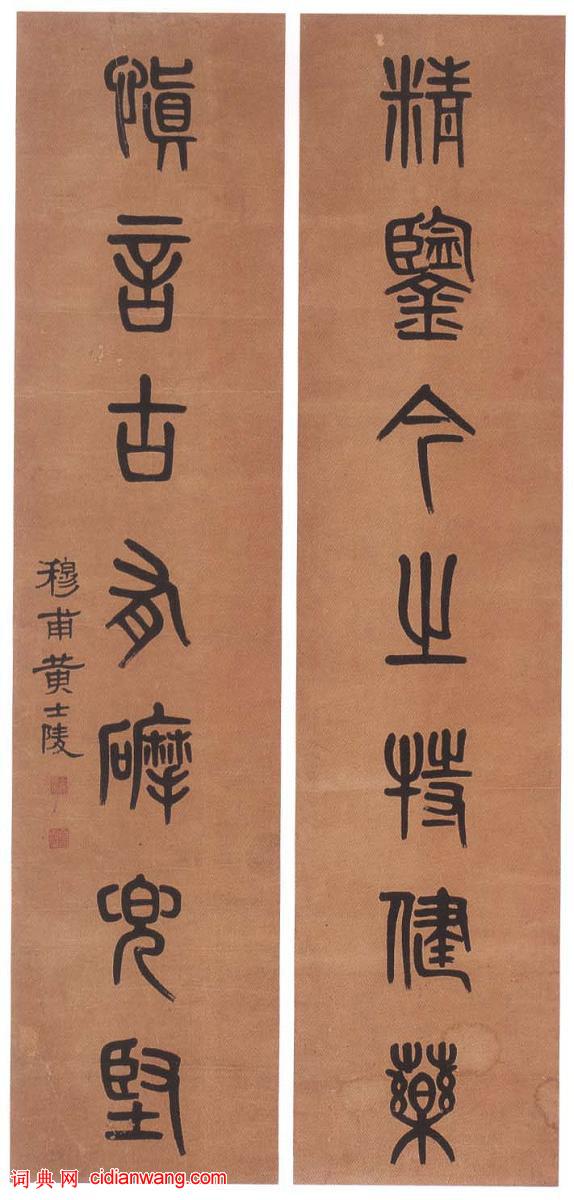 精鑒今之特健藥
慎言古有磨兜堅
穆甫黄士陵
词典网 cidianwang.com